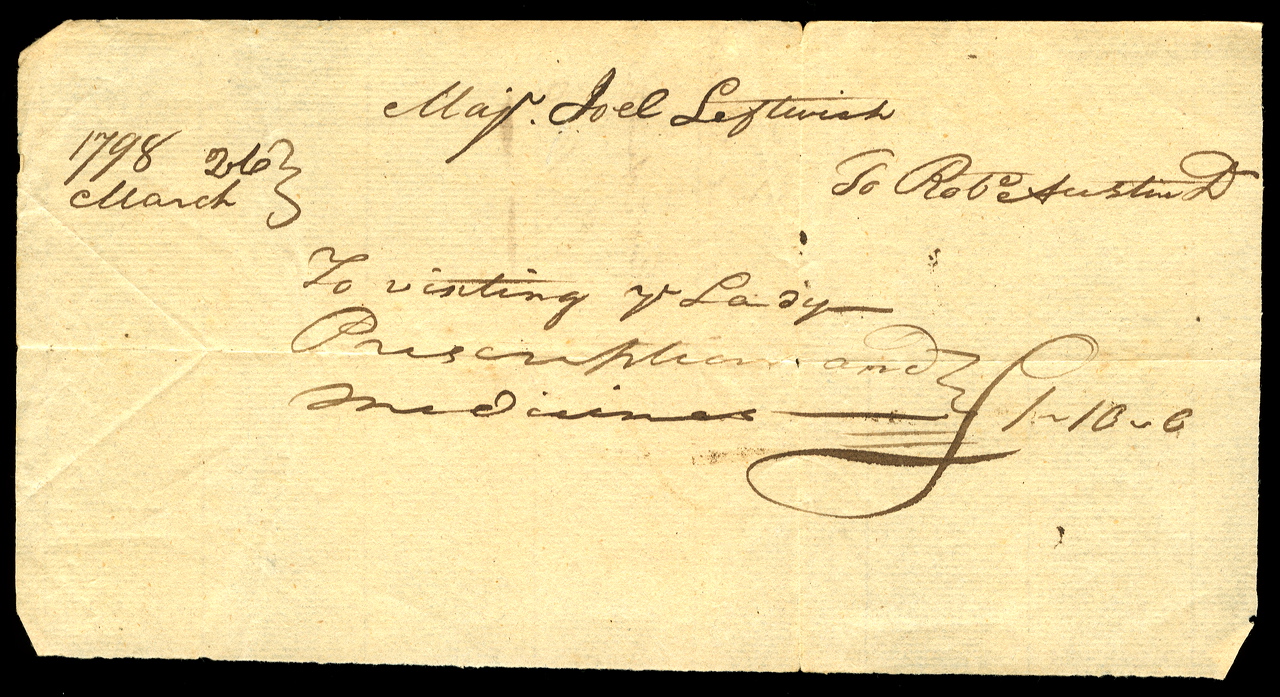 Majr. Joel Leftwich
1798 26
March
To Robt Austin Dr
To visiting yr Lady
Prescription and
medicines £ 1 - 10 - 6